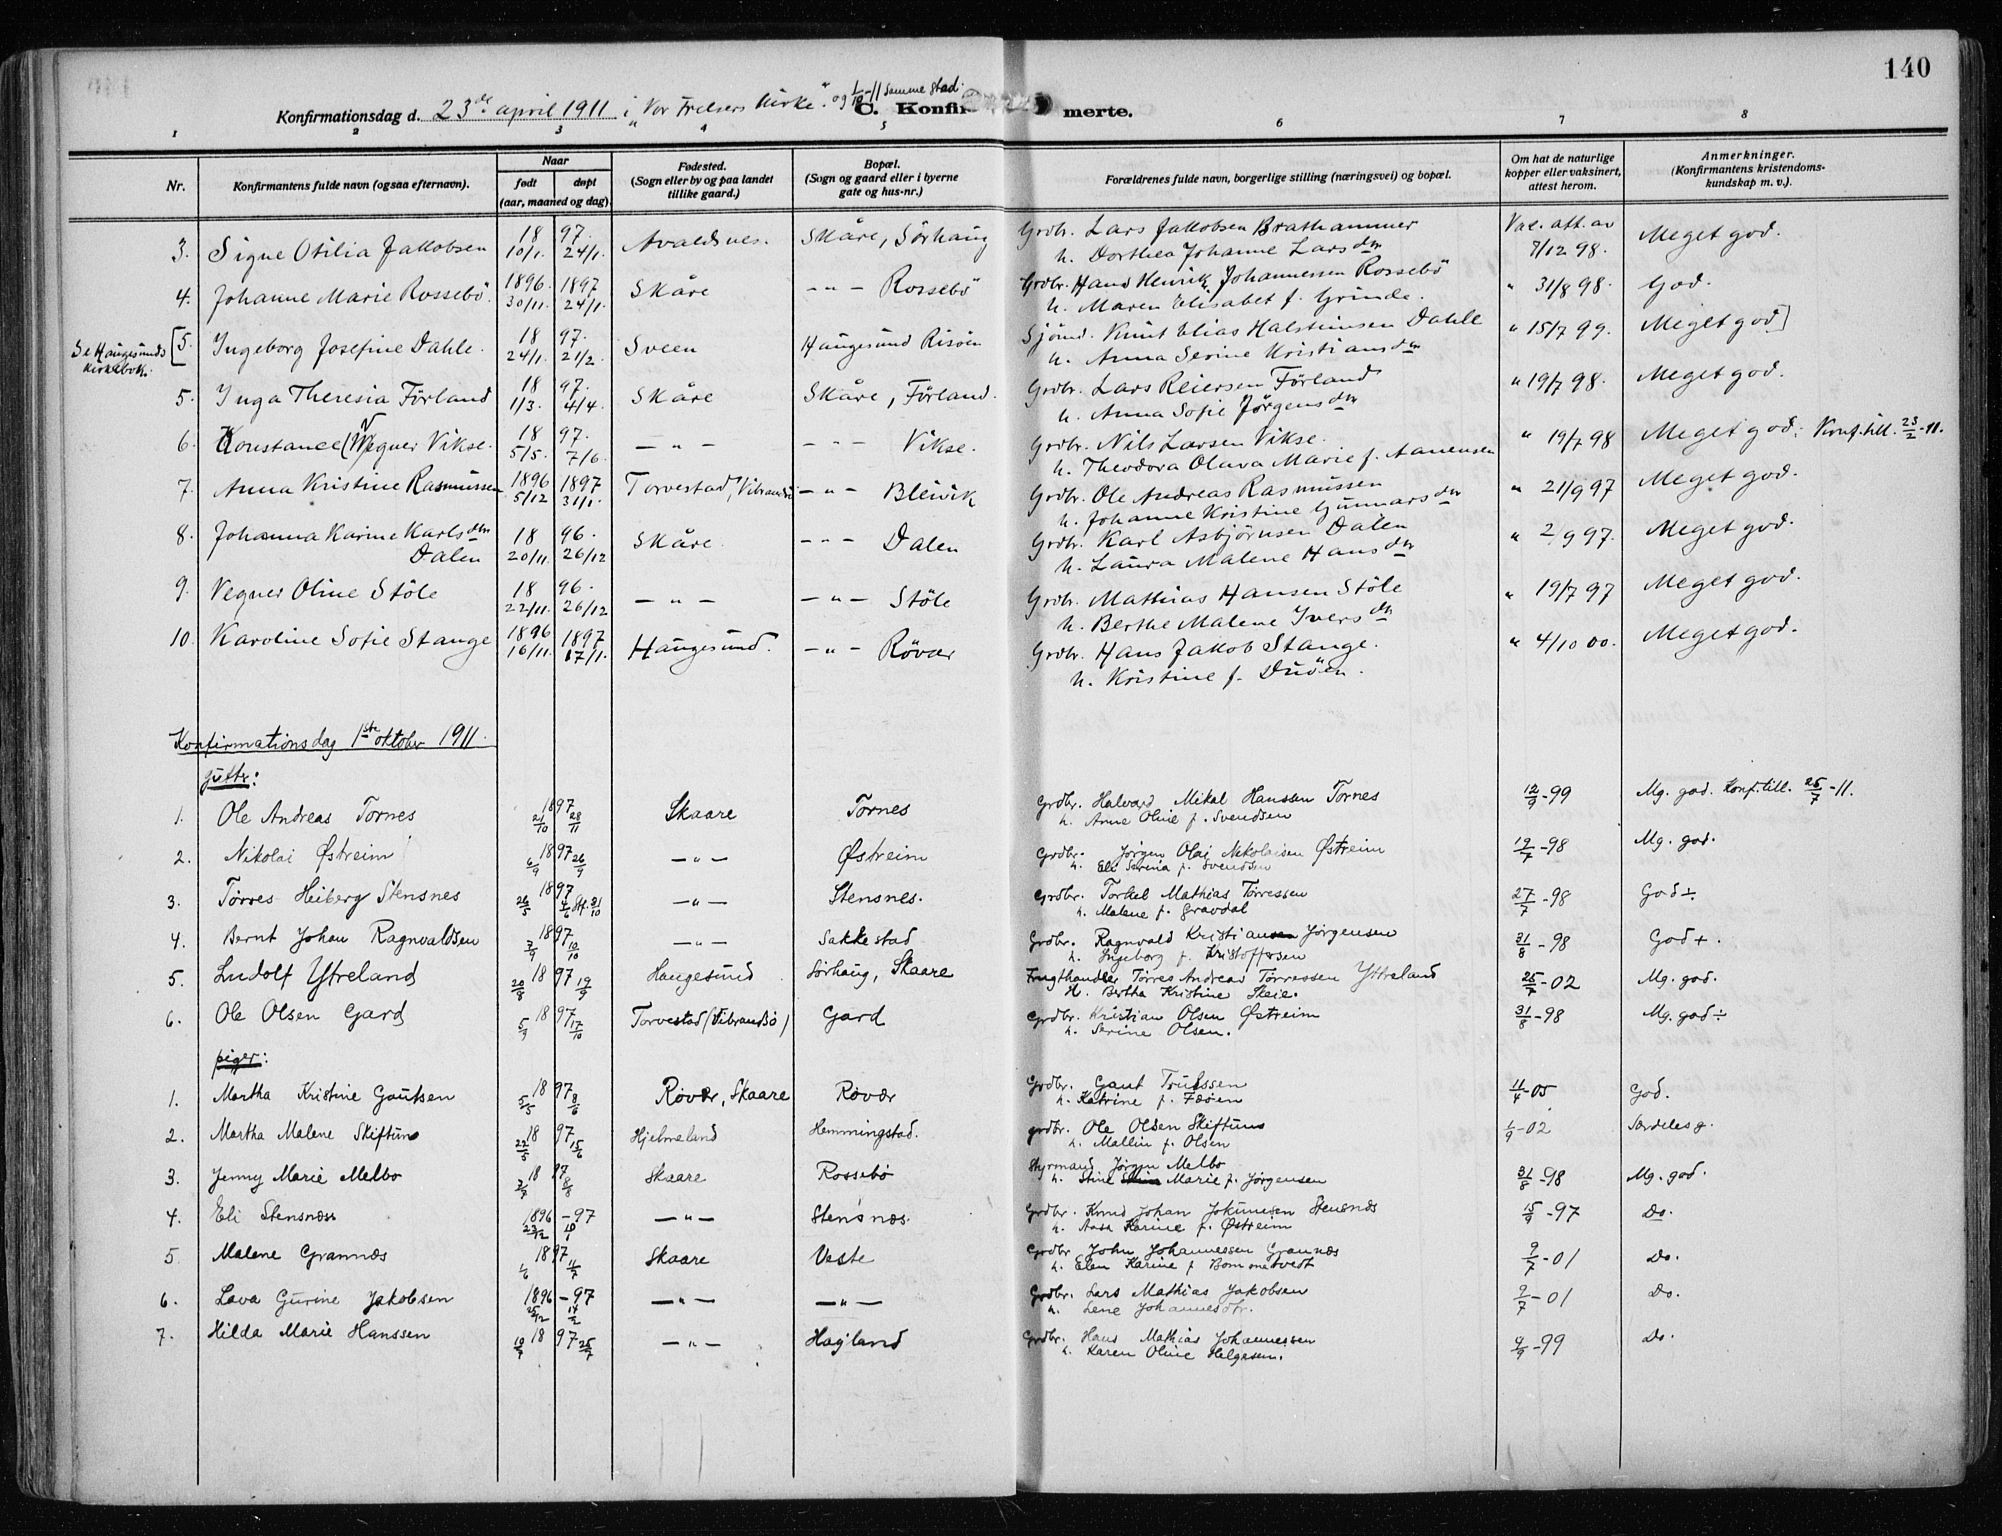 140
Konfirmationsdag d. 23de april 1911 i "Vor Frelsers Kirke". og 1/10-11 samme stad.
C. Konfirmerte.
1 2 3 4 5 6 7 8
Nr. Konfirmantens fulde navn (ogsaa efternavn). Naar født døpt (aar, maaned og dag) Fødested. (Sogn eller by og paa landet tillike gaard.) Bopæl. (Sogn og gaard eller i byerne gate og hus-nr.) Forældrenes fulde navn, borgerlige stilling (næringsvei) og bopæl. Om hat de naturlige kopper eller vaksinert, attest herom. Anmerkninger. (Konfirmantens kristendomskundskap m. v.).
3. Signe Otilia Jakobsen 18 97. 10/1. 24/1. Avaldsnes. Skåre, Sörhaug Grdbr. Lars Jakobsen Brathammer Vac. att. av 7/12 98. Meget god.
h. Dorthea Johanne Larsdtr
4. Johanne Marie Rossebö. 1896. 1897 30/11. 24/1. Skåre - " - Rossebö Grdbr. Hans Henrik Johannessen Rossebö " 31/8 98. God.
h. Maren Elisabet f. Grinde.
Se Haugesunds kirkebok. [5. Ingeborg Josefine Dahle. 18 97. 24/1. 21/2. Sveen Haugesund Risöen Sjömd. Knut Elias Halstensen Dahle " 15/7 99. Meget god]
h. Anna Serine Kristiansdtr
5. Inga Theresia Förland 18 97. 1/3. 4/4. Skåre Skåre, Förland. Grdbr. Lars Reiersen Förland " 19/7 98. Meget god.
h. Anna Sofie Jørgensdtr
6. Konstance (Wegner Vikse. 18 97. 5/5. 7/6. - " - - " - Vikse. Grdbr. Nils Larsen Vikse. " 19/7 98 Meget god. Konf. till. 23/2-11.
h. Theodora Olava Marie f. Aanensen
7. Anna Kristine Rasmussen 1896 1897 5/12 31/1. Torvestad, Vibrandsö - " - Bleivik Grdbr. Ole Andreas Rasmussen " 21/9 97 Meget god.
h. Johanne Kristine Gunnarsdtr
8. Johanna Karine Karlsdtr Dalen 18 96. 20/11. 26/12 Skåre. - " - Dalen Grdbr. Karl Asbjörnsen Dalen " 2/9 97. Meget god.
h. Laura Malene Hansdtr
9. Vegner Oline Stöle 18 96. 22/11. 26/12 - " - - " - Stöle Grdbr. Mathias Hansen Stöle " 19/7 97 Meget god.
h. Berthe Malene Iversdtr
10. Karoline Sofie Stange 1896 1897 16/11. 17/1. Haugesund. - " - Røvær Grdbr. Hans Jakob Stange. " 4/10 00. Meget god.
h. Kristine f. Duöen.
Konfirmationsdag 1ste oktober 1911.
gutter:
1. Ole Andreas Tornes 1897 21/10 28/11 Skaare Tornes Grdbr. Halvard Mikal Hanssen Tornes 12/9-99 Mg. god. Konf. till. 25/7-11.
h. Anne Oline f. Svendsen
2. Nikolai Østreim 1897 6/9 26/9 - " - Østreim Grdbr. Jörgen Olai Nikolaisen Østreim 19/7-98 Mg. god.
h. Eli Serina f. Svendsen
3. Tørres Heiberg Stensnes 1897 26/5 - " - Stensnes. Grdbr. Torkel Mathias Tørressen 27/7-98 God÷
h. Malene f. Gravdal
4. Bernt Johan Ragnvaldsen 1897 3/9 10/10 - " - Sakkestad Grdbr. Ragnvald Kristian Jörgensen 31/8-98 God+.
h. Ingeborg f. Kristoffersen
5. Ludolf Ytreland 18 97 20/8 19/9 Haugesund Sørhaug, Skaare Frugthandler Tørres Andreas Tørressen Yttreland 25/7-02 Mg. god.
H. Bertha Kristine Skeie.
6. Ole Olsen Gard 18 97 5/9 17/10 Torvestad (Vibrandsö) Gard Grdbr. Kristian Olsen Østreim 31/8-98 Mg. god÷
h. Serine Olsen.
piger:
1. Martha Kristine Gautsen 18 97 5/5 8/6 Røvær, Skaare Røvær Grdbr. Gaut Trulssen 11/4-05 God.
h. Katrine f. Fæöen
2. Martha Malene Skiftun 18 97 22/5 15/6 Hjelmeland Hemmingstad. grdbr. Ole Olsen Skiftun 1/9-02 Særdeles g.
h. Mallin f. Olsen
3. Jenny Marie Melbo 18 97 8/8 Skaare Rossebø Styrmand Jørgen Melbo 31/8-98 Mg. god.
h. Stine Marie f. Jørgensen
4. Eli Stensnæs 1896 -97 23/12 10/1 - " - Stensnæs. Grdbr. Knud Johan Jokumsen Stensnæs 15/9-97 Do.
h. Aasa Karine f. Østreim
5. Malene Grannæs 1897 1/6 11/7 Skaare Veste Grdbr. John Johannessen Grannæs 9/7-01 Do.
h. Elen Karine f. Bommetvedt
6. Lava Gurine Jakobsen 1896 -97 25/12 14/2 - " - - " - Grdbr. Lars Mathias Jakobsen 9/7-01 Do.
h. Lene Johannesdtr.
7. Hilda Marie Hanssen 18 97 25/7 - " - Hagland Grdbr. Hans Mathias Johannessen 9/9-99 Do.
h. Karen Oline Helgesen.